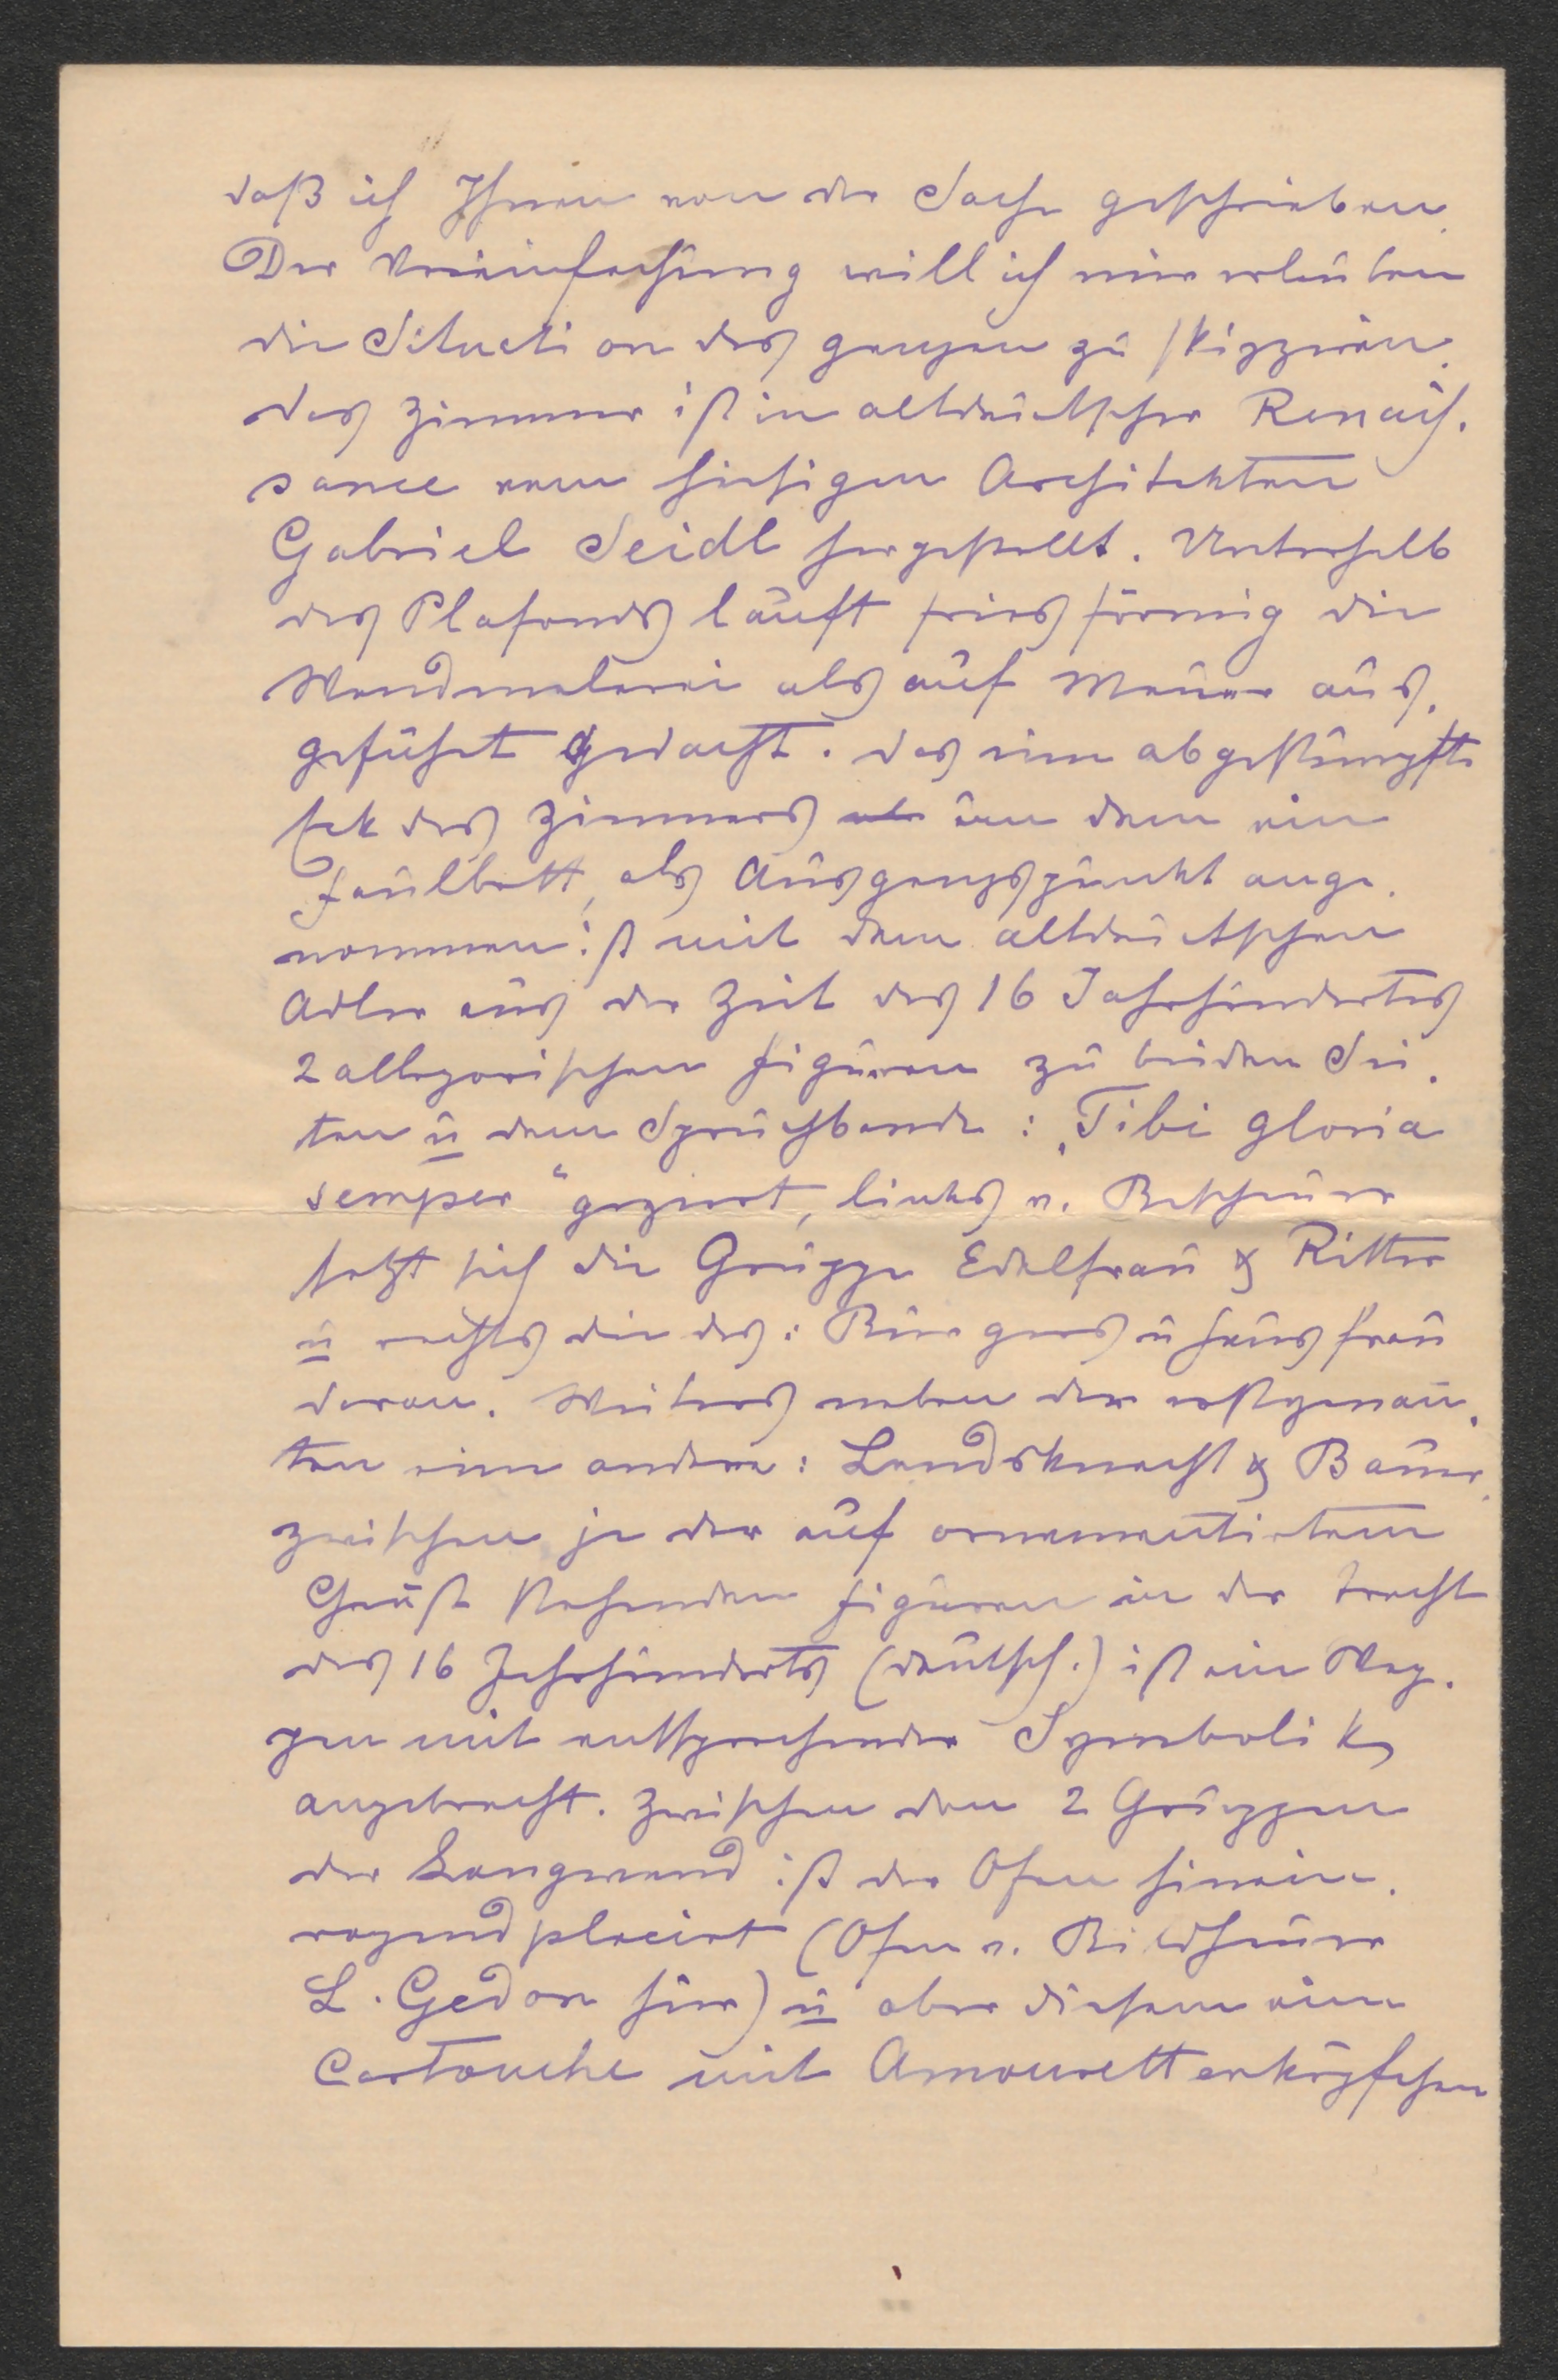 daß ich Ihnen von der Sache geschrieben.
Der Vereinfachung will ich mir erlauben
die Situation des ganzen zu skizziren.
das Zimmer ist in altdeutscher Renais.
sance vom hiesigen Architekten
Gabriel Seidl hergestellt. Unterhalb
des Plafonds läuft friesförmig die
Wandmalerei als auf Mauer aus.
geführt gedacht. das eine abgestumpfte
Eck des Zimmers an dem ein
Faulbett, als Ausgangspunkt ange.
nommen ist mit dem altdeutschen
Adler aus der Zeit des 16 Jahrhundertes
2 allegorischen Figuren zu beiden Sei.
ten u dem Spruchbande: „Tibi gloria
semper“ geziert, links v. Beschauer
setzt sich die Gruppe Edelfrau & Ritter
u rechts die des: Bürgers u Hausfrau
daran. Weiters neben der erstgenan̄.
ten eine andere: Landsknecht & Bauer.
zwischen je der auf ornamentirtem
stehenden Figuren in der Tracht
des 16 Jahrhunderts (deutsch.) ist ein Wap.
pen mit entsprechender Symbolik
angebracht. Zwischen den 2 Gruppen
der Langwand ist der Ofen hinein.
ragend placirt (Ofen v. Bildhauer
L. Gedon hier) u ober diesem eine
Cartouche mit Amourettenköpfchen